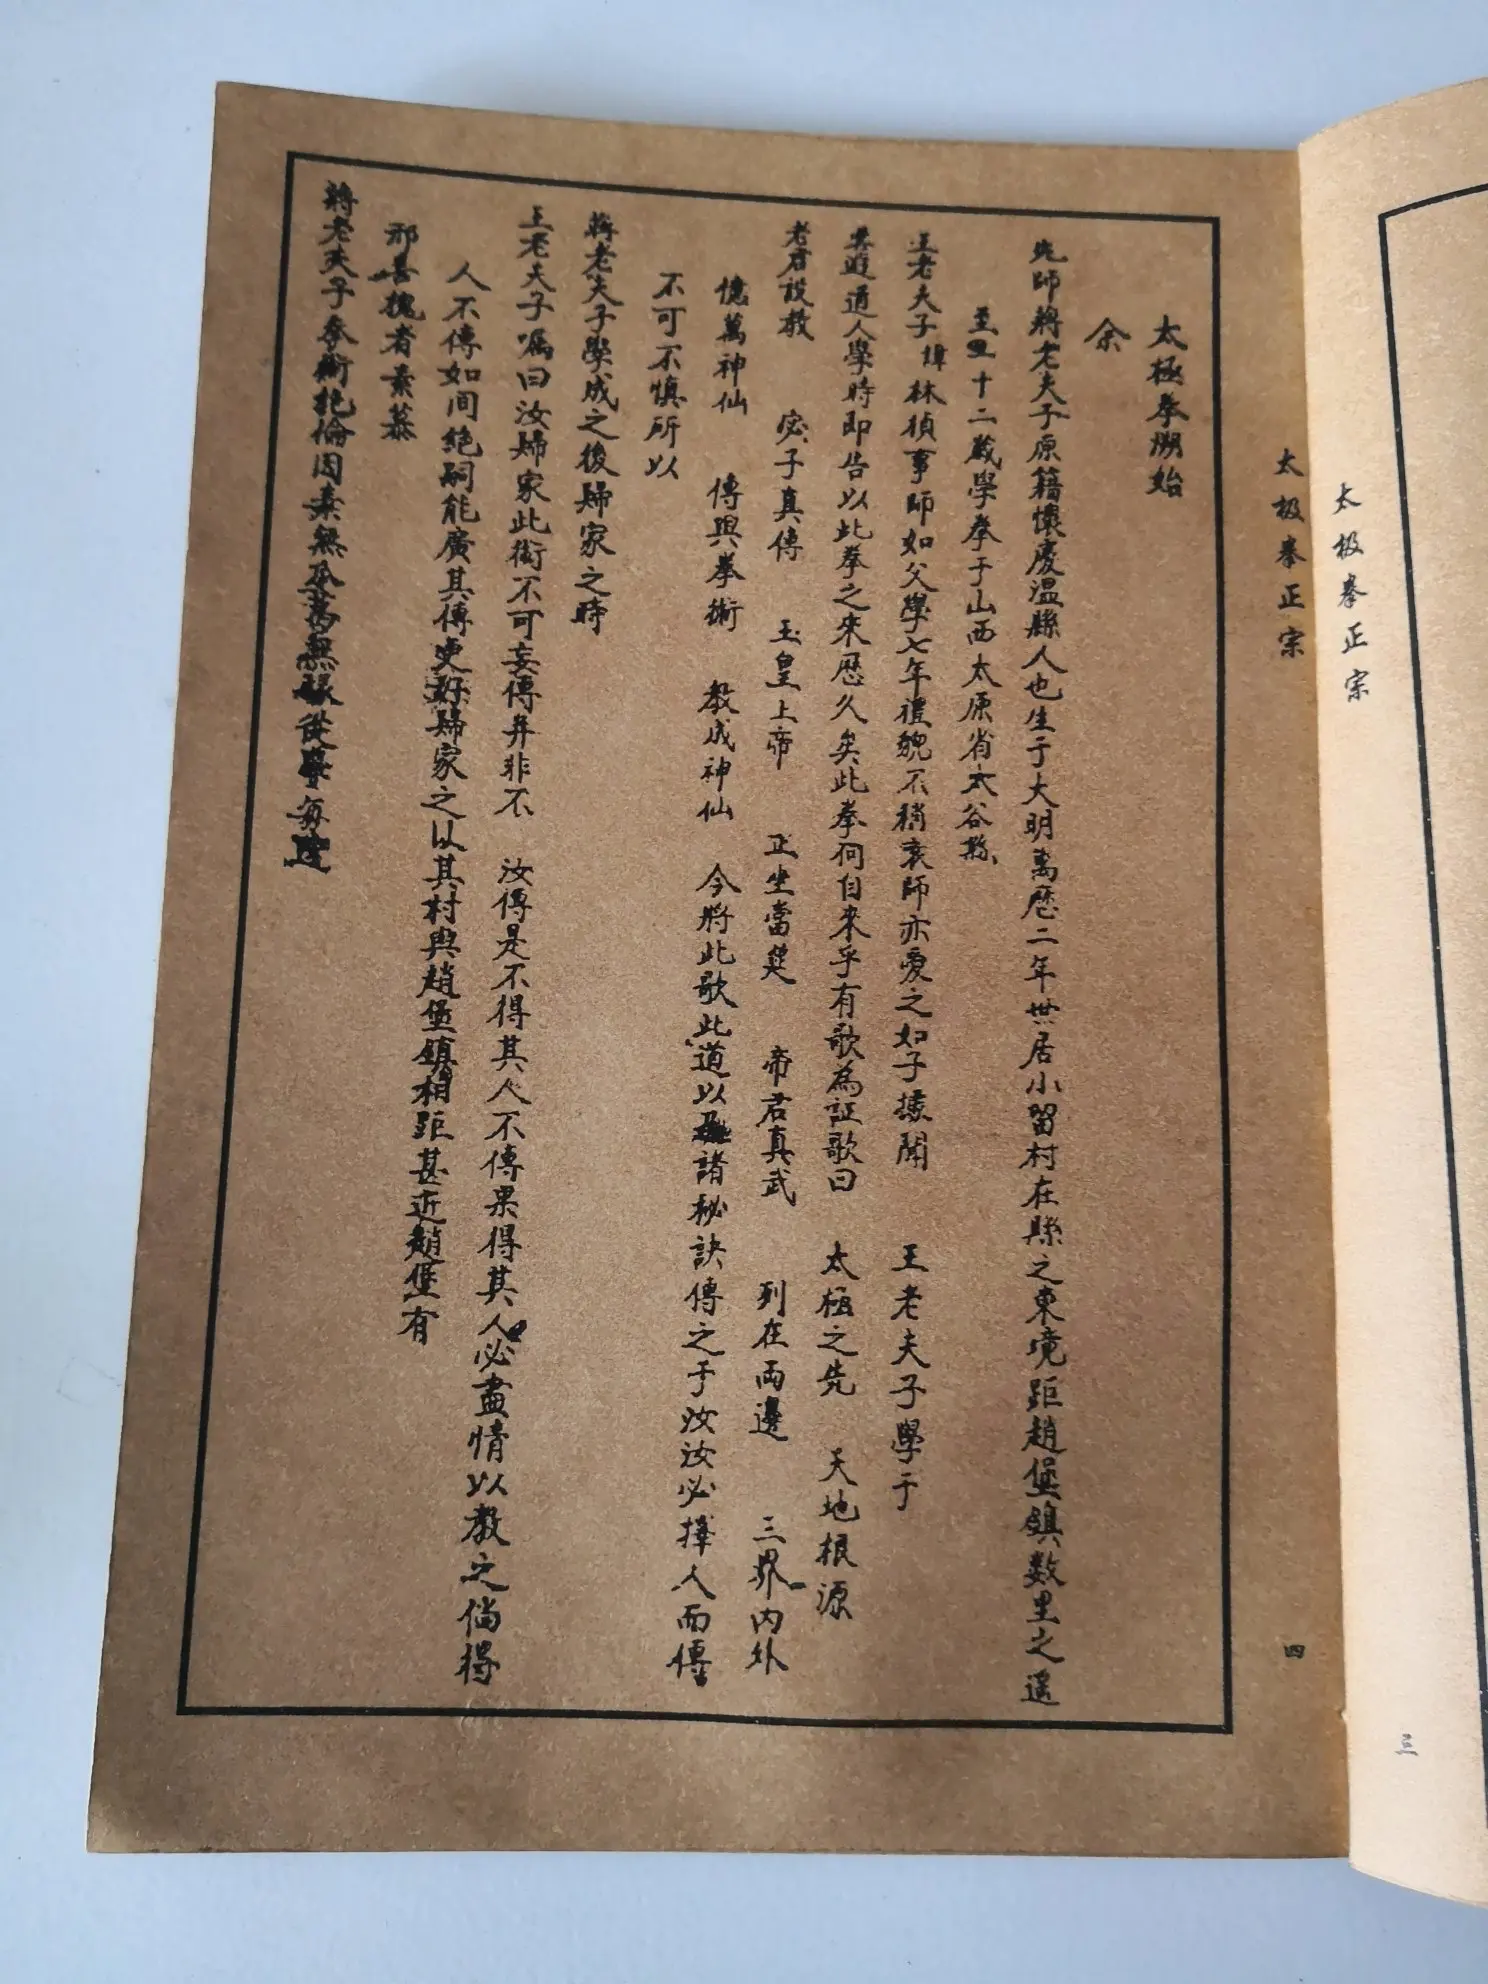 太極拳正宗
太極拳溯始
余
先師蔣老夫子原籍懷慶溫縣人也生于大明萬歷二年世居小留村在縣之東境距趙堡鎮数里之遙
至二十二歲學拳于山西太原省太谷縣
王老夫子諱林禎事師如父學七年禮貌不稍衰師亦愛之如子據聞　王老夫子學于
雲遊道人學時即告以此拳之來歷久矣此拳何自來乎有歌為証歌曰　太極之先　天地根源
老君設教　宓子真傳　玉皇上帝　正坐當筵　帝君真武　列在両邊　三界内外
億萬神仙　傳與拳術　教成神仙　今將此歌此道以及諸秘訣傳之于汝汝必擇人而傳
不可不慎所以
蔣老夫子學成之後婦家之時
王老夫子嘱曰汝婦家此術不可妄傳并非不　汝傳是不得其人不傳果得其人必盡情以教之倘得
人不傳如同絕嗣能廣其傳更好婦家之以其村與趙堡鎮相距甚近趙堡有
邢喜槐者素慕
蔣老夫子拳術絶倫因素無瓜葛無緣從學每逢
太极拳正宗
四
三